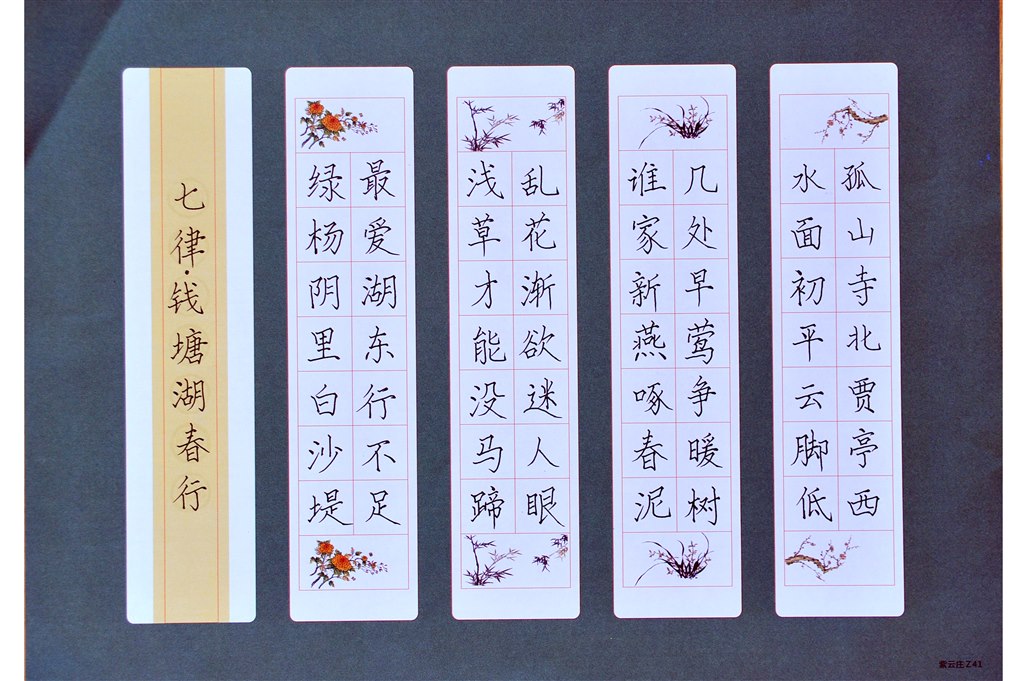 孤山寺北贾亭西
水面初平云脚低
几处早莺争暖树
谁家新燕啄春泥
乱花渐欲迷人眼
浅草才能没马蹄
最爱湖东行不足
绿杨阴里白沙堤
七律·钱塘湖春行
紫云庄Z41